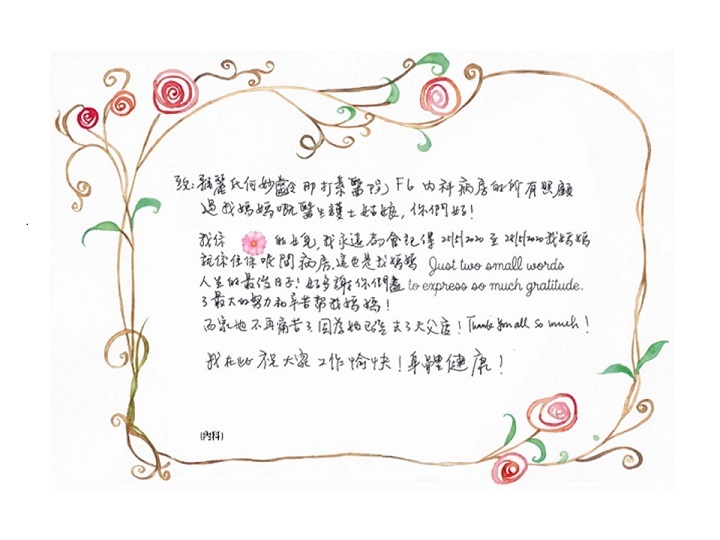 致:雅麗氏何妙齡那打素醫院 F6 內科病房的所有照顧
過我媽媽嘅醫生護士姑娘,你們好!
我係 的女兒,我永遠都會記得 25/5/2020 至 28/5/2020 我媽媽
就係住係呢間病房,這也是我媽媽 Just two small words
人生的最後日子!好多謝你們盡 to express so much gratitude.
了最大的努力和辛苦幫我媽媽!
而家她不再痛苦了因為她已經去了天父度!Thank you all so much!
我在此祝大家工作愉快!身體健康!
(內科)